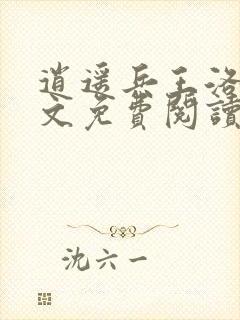 逍遥兵王洛
文免費閱讀
沈六一